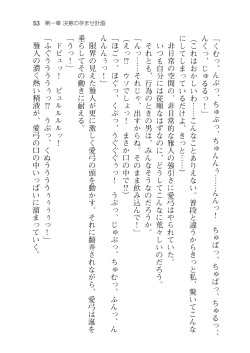 53 第一章 決意の孕ませ計画
「くむっ、んぷっ、ちゅぷっ、ちゅんんぅ……んんっ！　ちゅぱっ、ちゅぱっ、ちゅるっ、
んくっ、じゅるるっ！」
（これはおかしいわ……こんなことありえない。普段と違うからきっと私、驚いてこんな
にしてしまっているだけだわ、きっと）
非日常の空間の、非日常的な雅人の強引さに愛弓はやられていた。
いつも自分には従順なはずなのに、どうしてこんなに荒々しいのだろう。
それとも、行為のときの男は、みんなそうなのだろうか。
「んっ……それじゃ、出すからね。そのまま飲み込んで！」
（えっ、ウソでしょっ……まさか口の中でっ!?）
「ほごっ、ほぐっ、うぐぐぐぅっ！　うぶっ、じゅぷっ、ちゅむっ、ふんっ、ん
んんんぅっ！」
限界の見えた雅人が更に激しく愛弓の頭を動かす。それに翻弄されながら、愛弓は涎を
垂らしてその動きに耐える。
「うっ！」
ドビュッ！　ビュルルルルッ！
「ふぐううううぅっ!?　うぷっ、くぬううううううぅっ！」
雅人の濃く熱い精液が、愛弓の口の中いっぱいに溜まっていく。